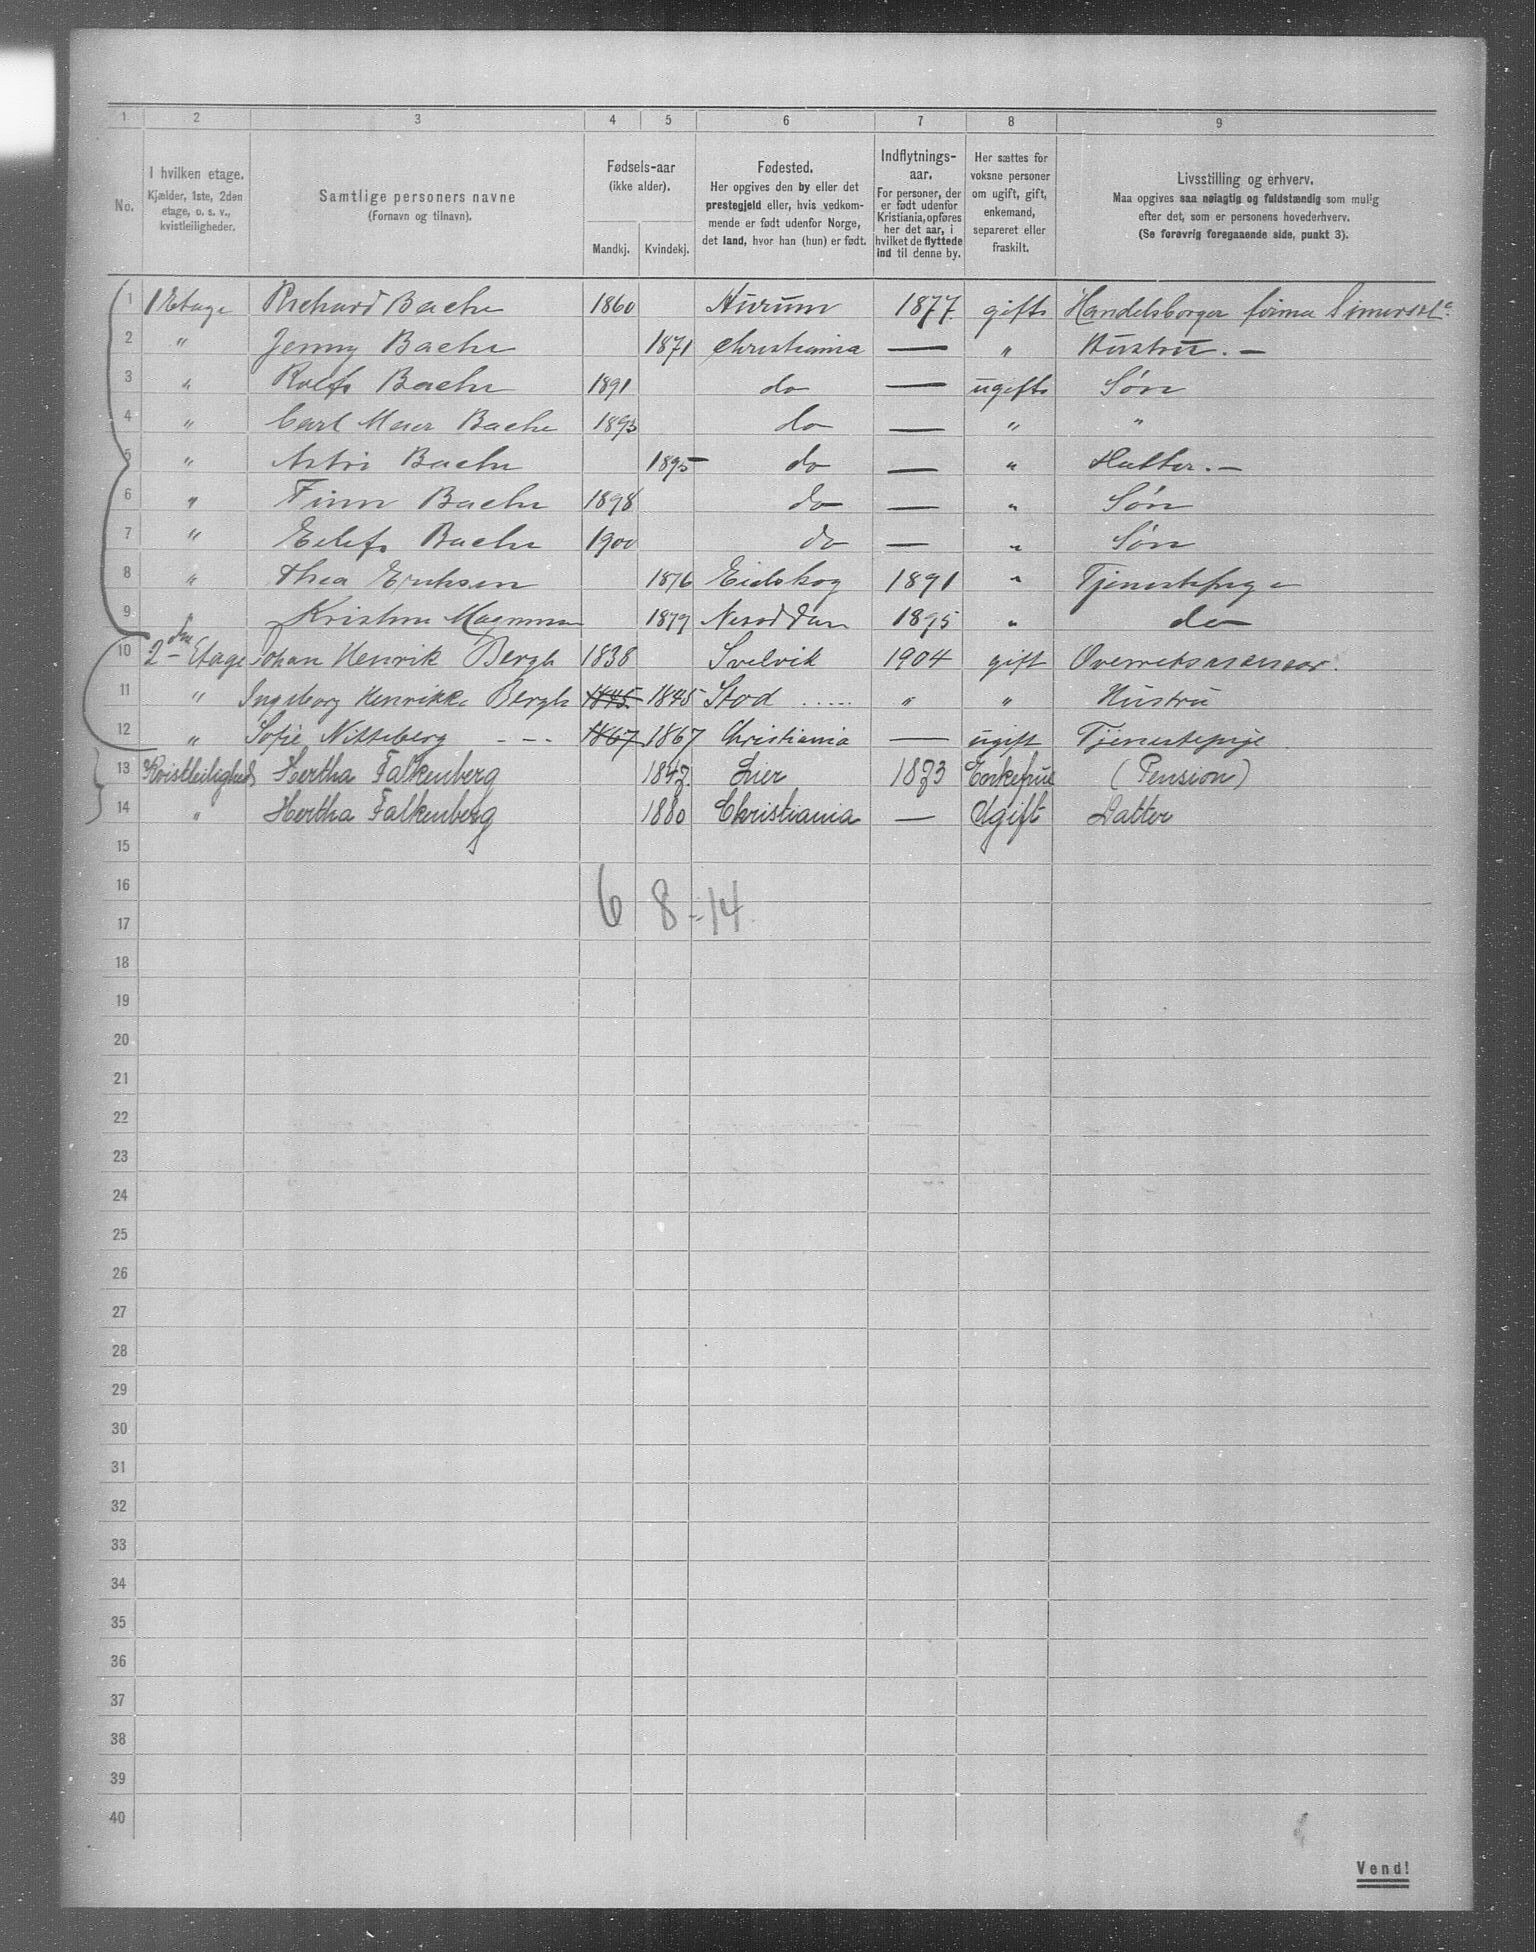 1 2 3 4 5 6 7 8 9
No.
I hvilken etage.
Kjælder, 1ste, 2den
etage, o. s. v.,
kvistleiligheder.
Samtlige personers navne
(Fornavn og tilnavn).
Fødsels-aar
(ikke alder).
Mandkj. Kvindekj.
Fødested.
Her opgives den by eller det
prestegjeld eller, hvis vedkom-
mende er født udenfor Norge,
det land, hvor han (hun) er født.
Indflytnings-
aar.
For personer, der
er født udenfor
Kristiania, opføres
her det aar, i
hvilket de flyttede
ind til denne by.
Her sættes for
voksne personer
om ugift, gift,
enkemand,
separeret eller
fraskilt.
Livsstilling og erhverv.
Maa opgives saa nøiagtig og fuldstændig som mulig
efter det, som er personens hovederhverv.
(Se forøvrig foregaaende side, punkt 3).
1 1 Etage Richard Bache 1860 Hurum 1877. gift Handelsborger firma
2 " Jenny Bache 1871 Christiania — " Hustru. —
3 " Rolf Bache 1891 do — ugift Søn
4 " Carl Bache 1893 do — " "
5 " Astri Bache 1895 do — " Datter. —
6 " Finn Bache 1898 do — " Søn
7 " Eilif Bache 1900 do — " Søn
8 " Thea Eriksen 1876 Eidskog 1891 " Tjenestepige
9 " Kristine Magnussen 1879 Nesodden 1895 " do
10 2den Etage Johan Henrik Bergh 1838 Svelvik 1904 gift Overretssagfører.
11 " Ingeborg Henrikke Bergh 1845 1845 Stod ..... " " Hustru
12 " Sofie Nitteberg - - - 1867 1867 Christiania — ugift Tjenestepige
13 Kvistleilighed Hertha Falkenberg 1847. Lier 1873 Enkefrue (Pension)
14 " Hertha Falkenberg 1880 Christiania — Ugift Datter
15
16
6 8 = 14
17
18
19
20
21
22
23
24
25
26
27
28
29
30
31
32
33
34
35
36
37
38
39
40
Vend!